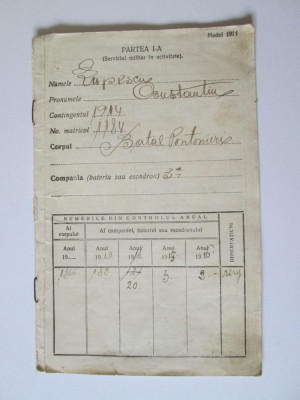 Model 1911
PARTEA I-A
(Serviciul militar în activitate).
Numele Popescu
Pronumele Constantin
Contingentul 1904
No. matricol 1184
Corpul Batal Pontonieri
Compania (bateria sau escadron) 3ª
NUMERILE DIN CONTROLUL ANUAL
Al corpului
Al companiei, bateriei sau escadronului
OBSERVAȚIUNI
Anul 19
Anul 19
Anul 19
Anul 1915
Anul 19
20